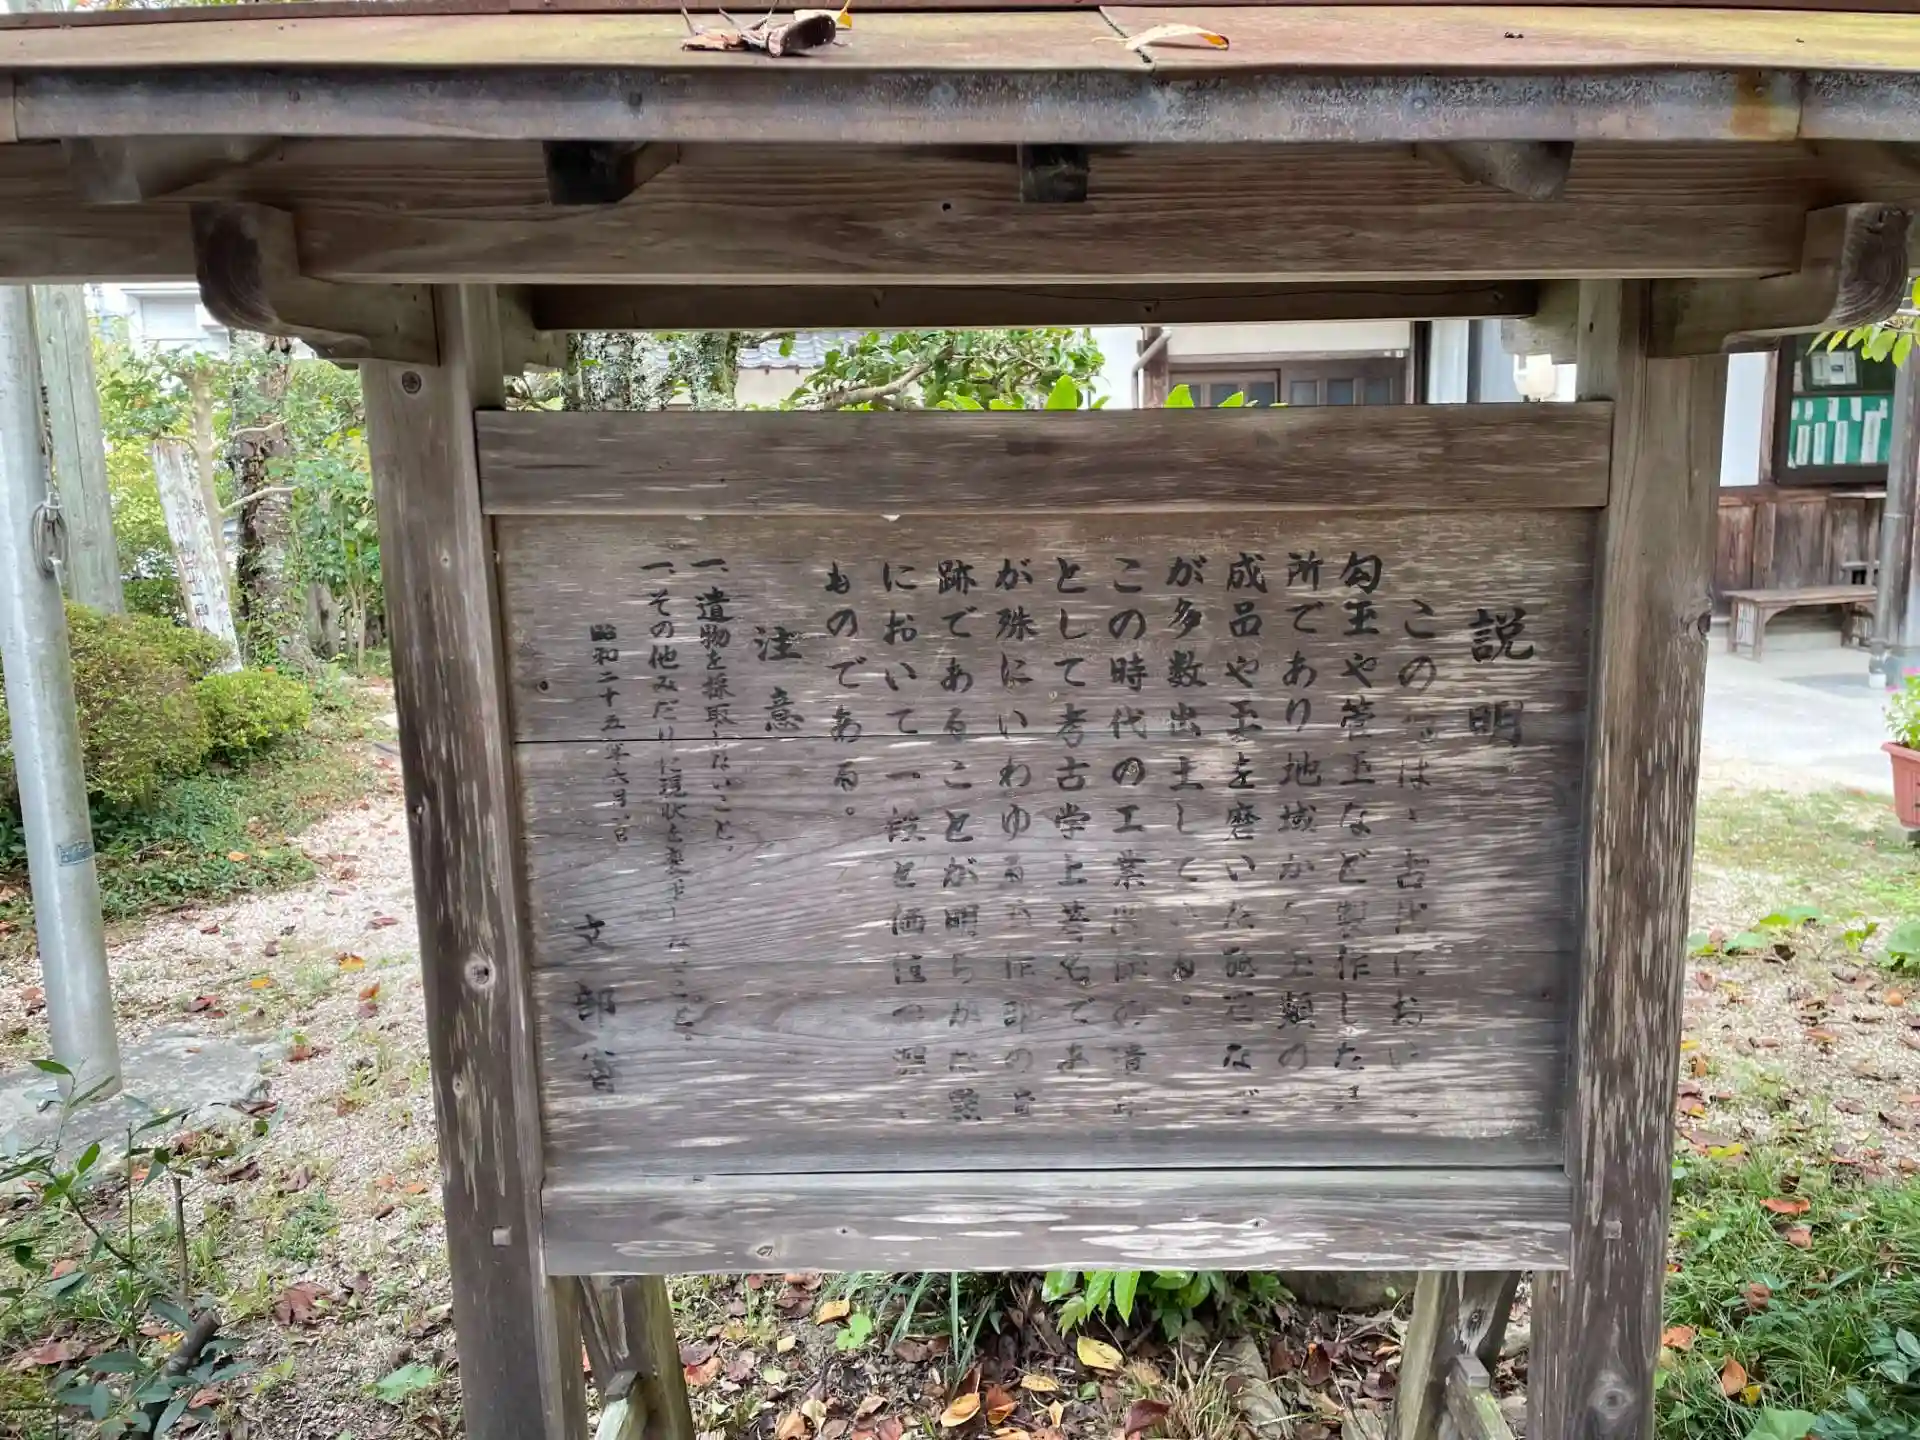 説明
この地は、古代におい
勾玉や管玉など製作した
所であり地域から玉類の
成品や玉を磨いた砥石など
が多数出土している。
この時代の工業
として考古学上著名であ
が殊にいわゆる玉作部の
跡であることが明らかな
において一段と価値
ものである。
注意
一、遺物を採取しないこと。
一、その他みだりに現状を変更しないこと。
昭和二十五年
文部省